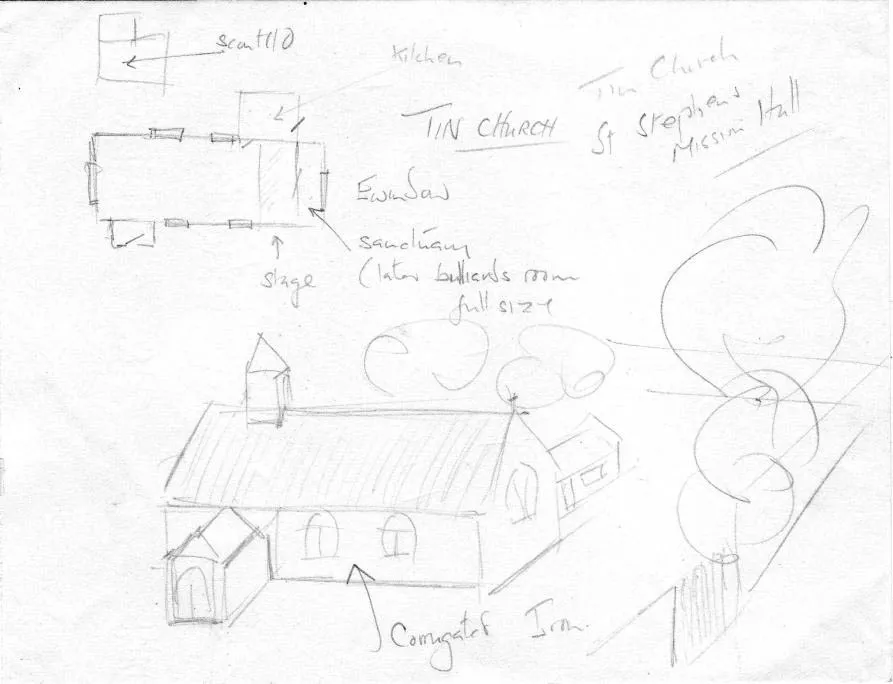 Scout H/Q
Kitchen
TIN CHURCH
Tin Church
St Stephens
Mission Hall
E window
sanctuary
(later billiards room
full size
stage
Corrugated Iron.